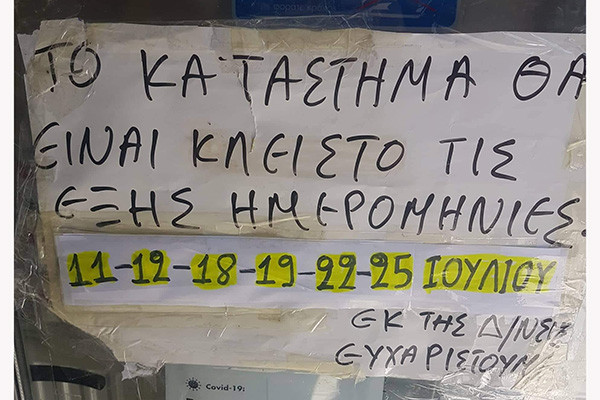 ΤΟ ΚΑΤΑΣΤΗΜΑ ΘΑ
ΕΙΝΑΙ ΚΛΕΙΣΤΟ ΤΙΣ
ΕΞΗΣ ΗΜΕΡΟΜΗΝΙΕΣ.
11-12-18-19-22-25 ΙΟΥΛΙΟΥ
ΕΚ ΤΗΣ Δ/ΝΕΙΣ
ΕΥΧΑΡΙΣΤΟΥΜ
Covid-19: